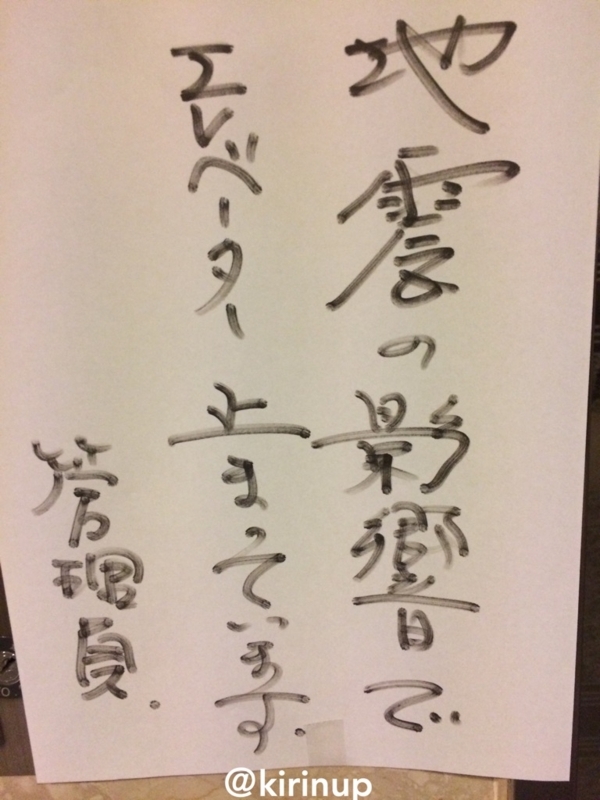 地震の影響で
エレベーター止まっています.
管理員.
@kirinup